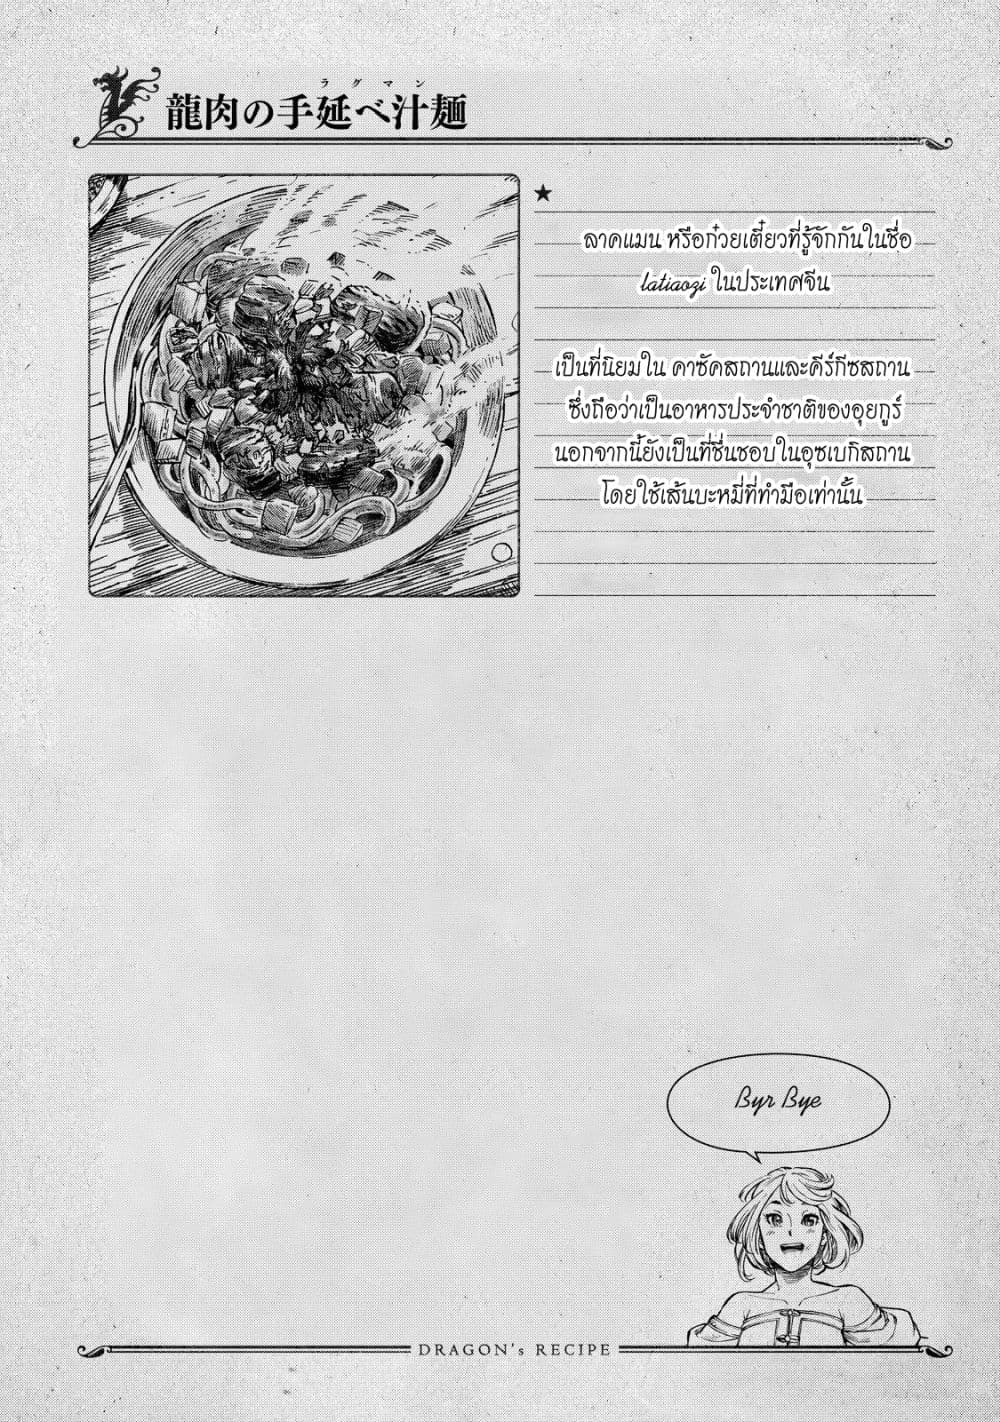 ラグマン
龍肉の手延べ汁麺
★
ลาคแมน หรือก๋วยเตี๋ยวที่รู้จักกันในชื่อ
latiaozi ในประเทศจีน
เป็นที่นิยมใน คาซัคสถานและคีร์กีซสถาน
ซึ่งถือว่าเป็นอาหารประจำชาติของอุยกูร์
นอกจากนี้ยังเป็นที่ชื่นชอบในอุซเบกิสถาน
โดยใช้เส้นบะหมี่ที่ทำมือเท่านั้น
Byr Bye
DRAGON's RECIPE